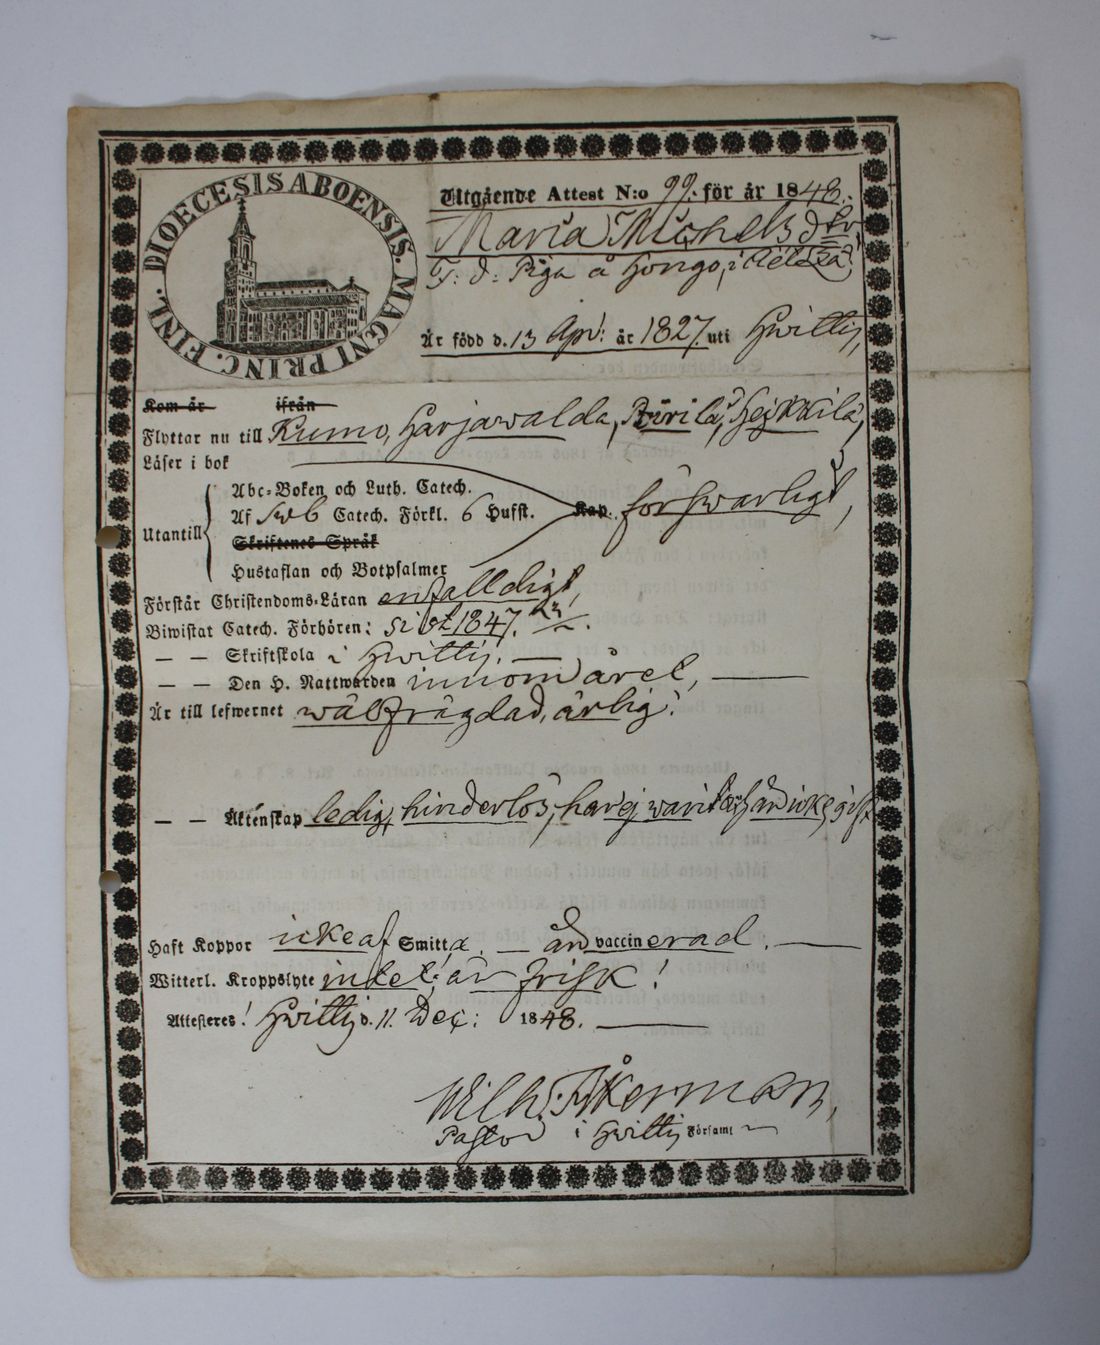 DIOECESIS ABOENSIS. MAGNI PRINC. FINL.
Utgående Attest N:o 99. för år 1848.
Maria Michelsdtr
F. d. Piga å Hongo, i
Är född d. 13 Apr: år 1827 uti Hwittis,
Kom år ifrån
Flyttar nu till Kumo, Harjawalda, Pirilä, Heikkilä,
Läser i bok
Abc-Boken och Luth. Catech.
Utantill Af Sveb Catech. Förkl. 6 Hufst. Kap. förswarligt,
Skriftenes Språk
Hustaflan och Botpsalmer
Förstår Christendoms-Läran enfalldigt,
Biwistat Catech. Förhören: sist 1847.
— — Skriftskola i Hwittis. —
— — Den H. Nattwarden innom året, —
Är till lefwernet wälfrägdad, ärlig.
— — Äktenskap ledig, hinderlös, har ej warit och än icke gift
Haft Koppor icke af Smitta, — än vaccinerad. —
Witterl. Kroppslyte intet; är frisk!
Attesteres! Hwittis d. 11 Dec: 1848. —
Wilh. Åkerman,
Pastor i Hwittis Församl